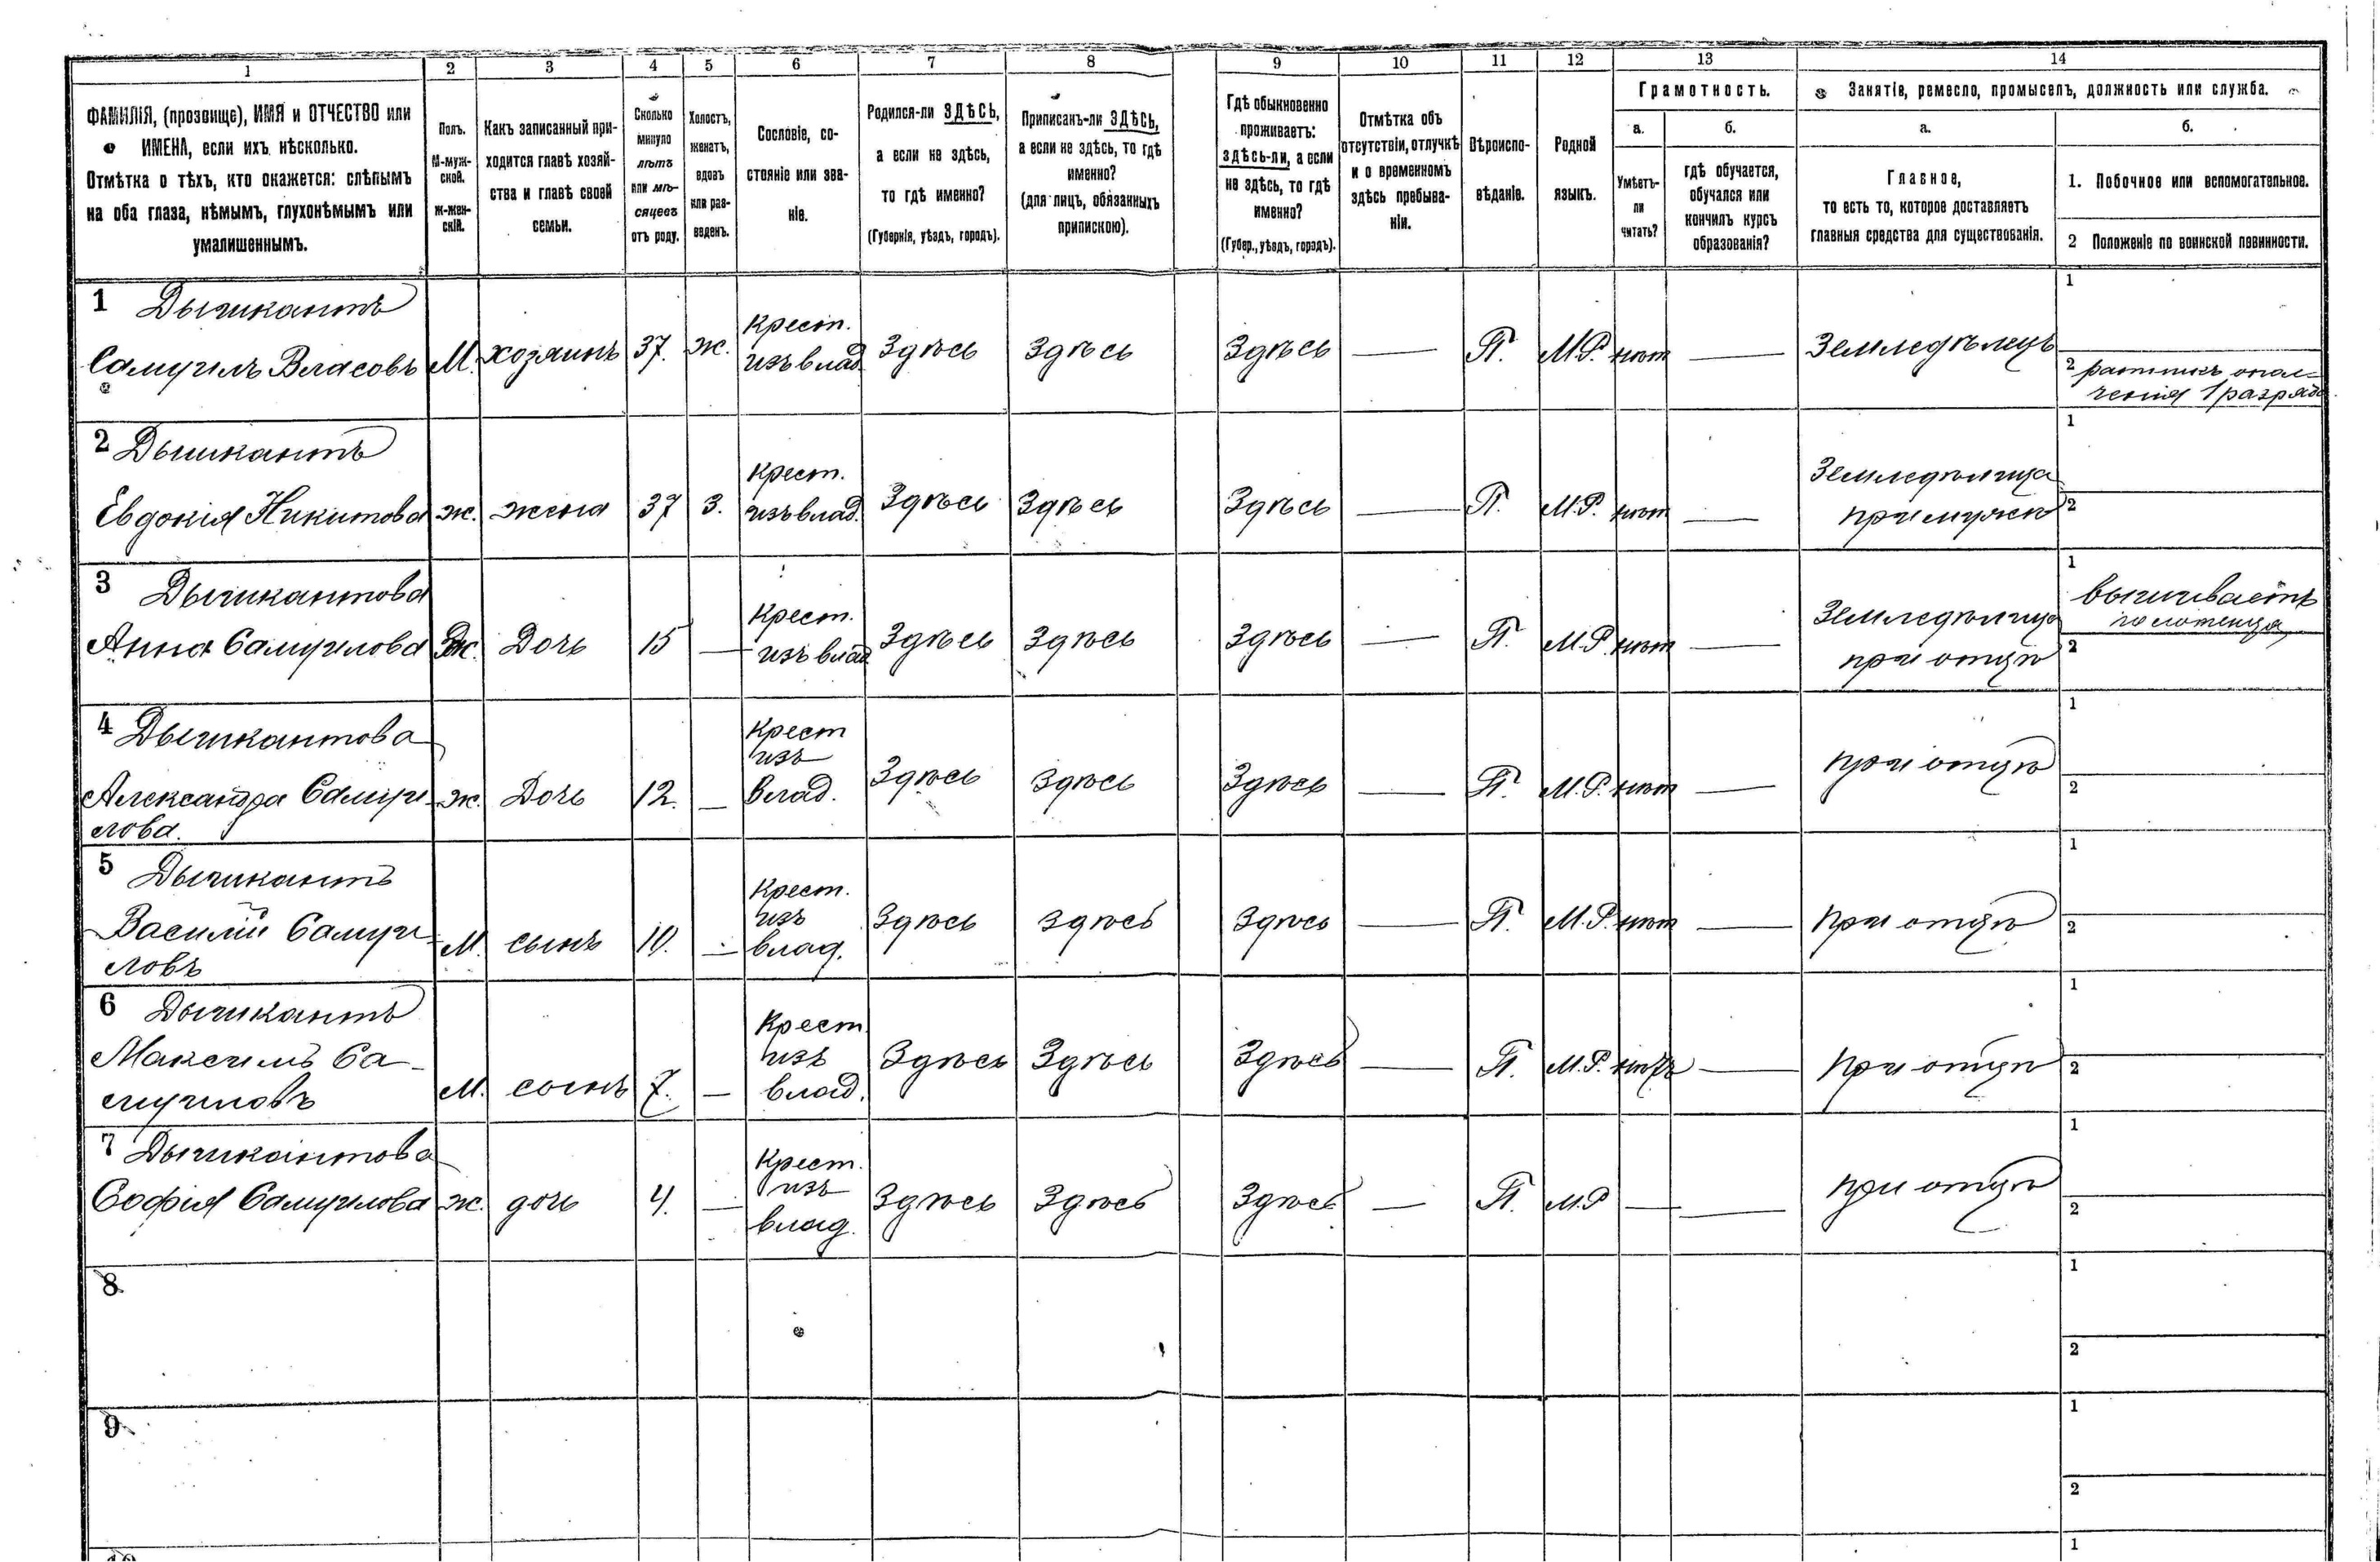 1 2 3 4 5 6 7 8 9 10 11 12 13 14
ФАМИЛІЯ, (прозвище), ИМЯ и ОТЧЕСТВО или
ИМЕНА, если ихъ нѣсколько.
Отмѣтка о тѣхъ, кто окажется: слѣпымъ
на оба глаза, нѣмымъ, глухонѣмымъ или
умалишеннымъ.
Полъ.
М-муж-
ской.
Ж-жен-
скій.
Какъ записанный при-
ходится главѣ хозяй-
ства и главѣ своей
семьи.
Сколько
минуло
лѣтъ
или мѣ-
сяцевъ
отъ роду.
Холостъ,
женатъ,
вдовъ
или раз-
веденъ.
Сословіе, со-
стояніе или зва-
ніе.
Родился-ли ЗДѢСЬ,
а если не здѣсь,
то гдѣ именно?
(Губернія, уѣздъ, городъ).
Приписанъ-ли ЗДѢСЬ,
а если не здѣсь, то гдѣ
именно?
(для лицъ, обязанныхъ
припискою).
Гдѣ обыкновенно
проживаетъ:
здѣсь-ли, а если
не здѣсь, то гдѣ
именно?
(Губер., уѣздъ, городъ).
Отмѣтка объ
отсутствіи, отлучкѣ
и о временномъ
здѣсь пребыва-
ніи.
Вѣроиспо-
вѣданіе.
Родной
языкъ.
Грамотность.
а.
Умѣетъ-
ли
читать?
б.
гдѣ обучается,
обучался или
кончилъ курсъ
образованія?
Занятіе, ремесло, промыселъ, должность или служба.
а.
Главное,
то есть то, которое доставляетъ
главныя средства для существованія.
б.
1. Побочное или вспомогательное.
2 Положеніе по воинской повинности.
1 Дычикантъ
Самуилъ Власовъ М. хозяинъ 37. ж. Крест.
изъ влад. Здѣсь Здѣсь Здѣсь — П. М.Р. нѣт — Земледѣлецъ
1
2 ратникъ опол-
ченія 1 разряда
2 Дычикантъ
Евдокія Никитова ж. жена 37 З. Крест.
изъ влад. Здѣсь Здѣсь Здѣсь — П. М.Р. нѣт — Земледѣлица
при мужѣ
1
2
3 Дычикантова
Анна Самуилова Ж. Дочь 15 — Крест.
изъ влад Здѣсь Здѣсь Здѣсь — П. М.Р. нѣт — Земледѣлица
при отцѣ
1 вышиваетъ
полотенца
2
4 Дычикантова
Александра Самуи-
лова. ж. Дочь 12. — Крест
изъ
влад. Здѣсь Здѣсь Здѣсь — П. М.Р. нѣт — при отцѣ
1
2
5 Дычикантъ
Василій Самуи-
ловъ М. сынъ 10. — Крест.
изъ
влад. Здѣсь Здѣсь Здѣсь — П. М.Р. нѣт — при отцѣ
1
2
6 Дычикантъ
Максимъ Са-
муиловъ М. сынъ 7. — Крест.
изъ
влад. Здѣсь Здѣсь Здѣсь — П. М.Р. нѣтъ — при отцѣ
1
2
7 Дычикантова
Софія Самуилова ж. дочь 4. — Крест.
изъ
влад. Здѣсь Здѣсь Здѣсь — П. М.Р — — при отцѣ
1
2
8
1
2
9
1
2
1